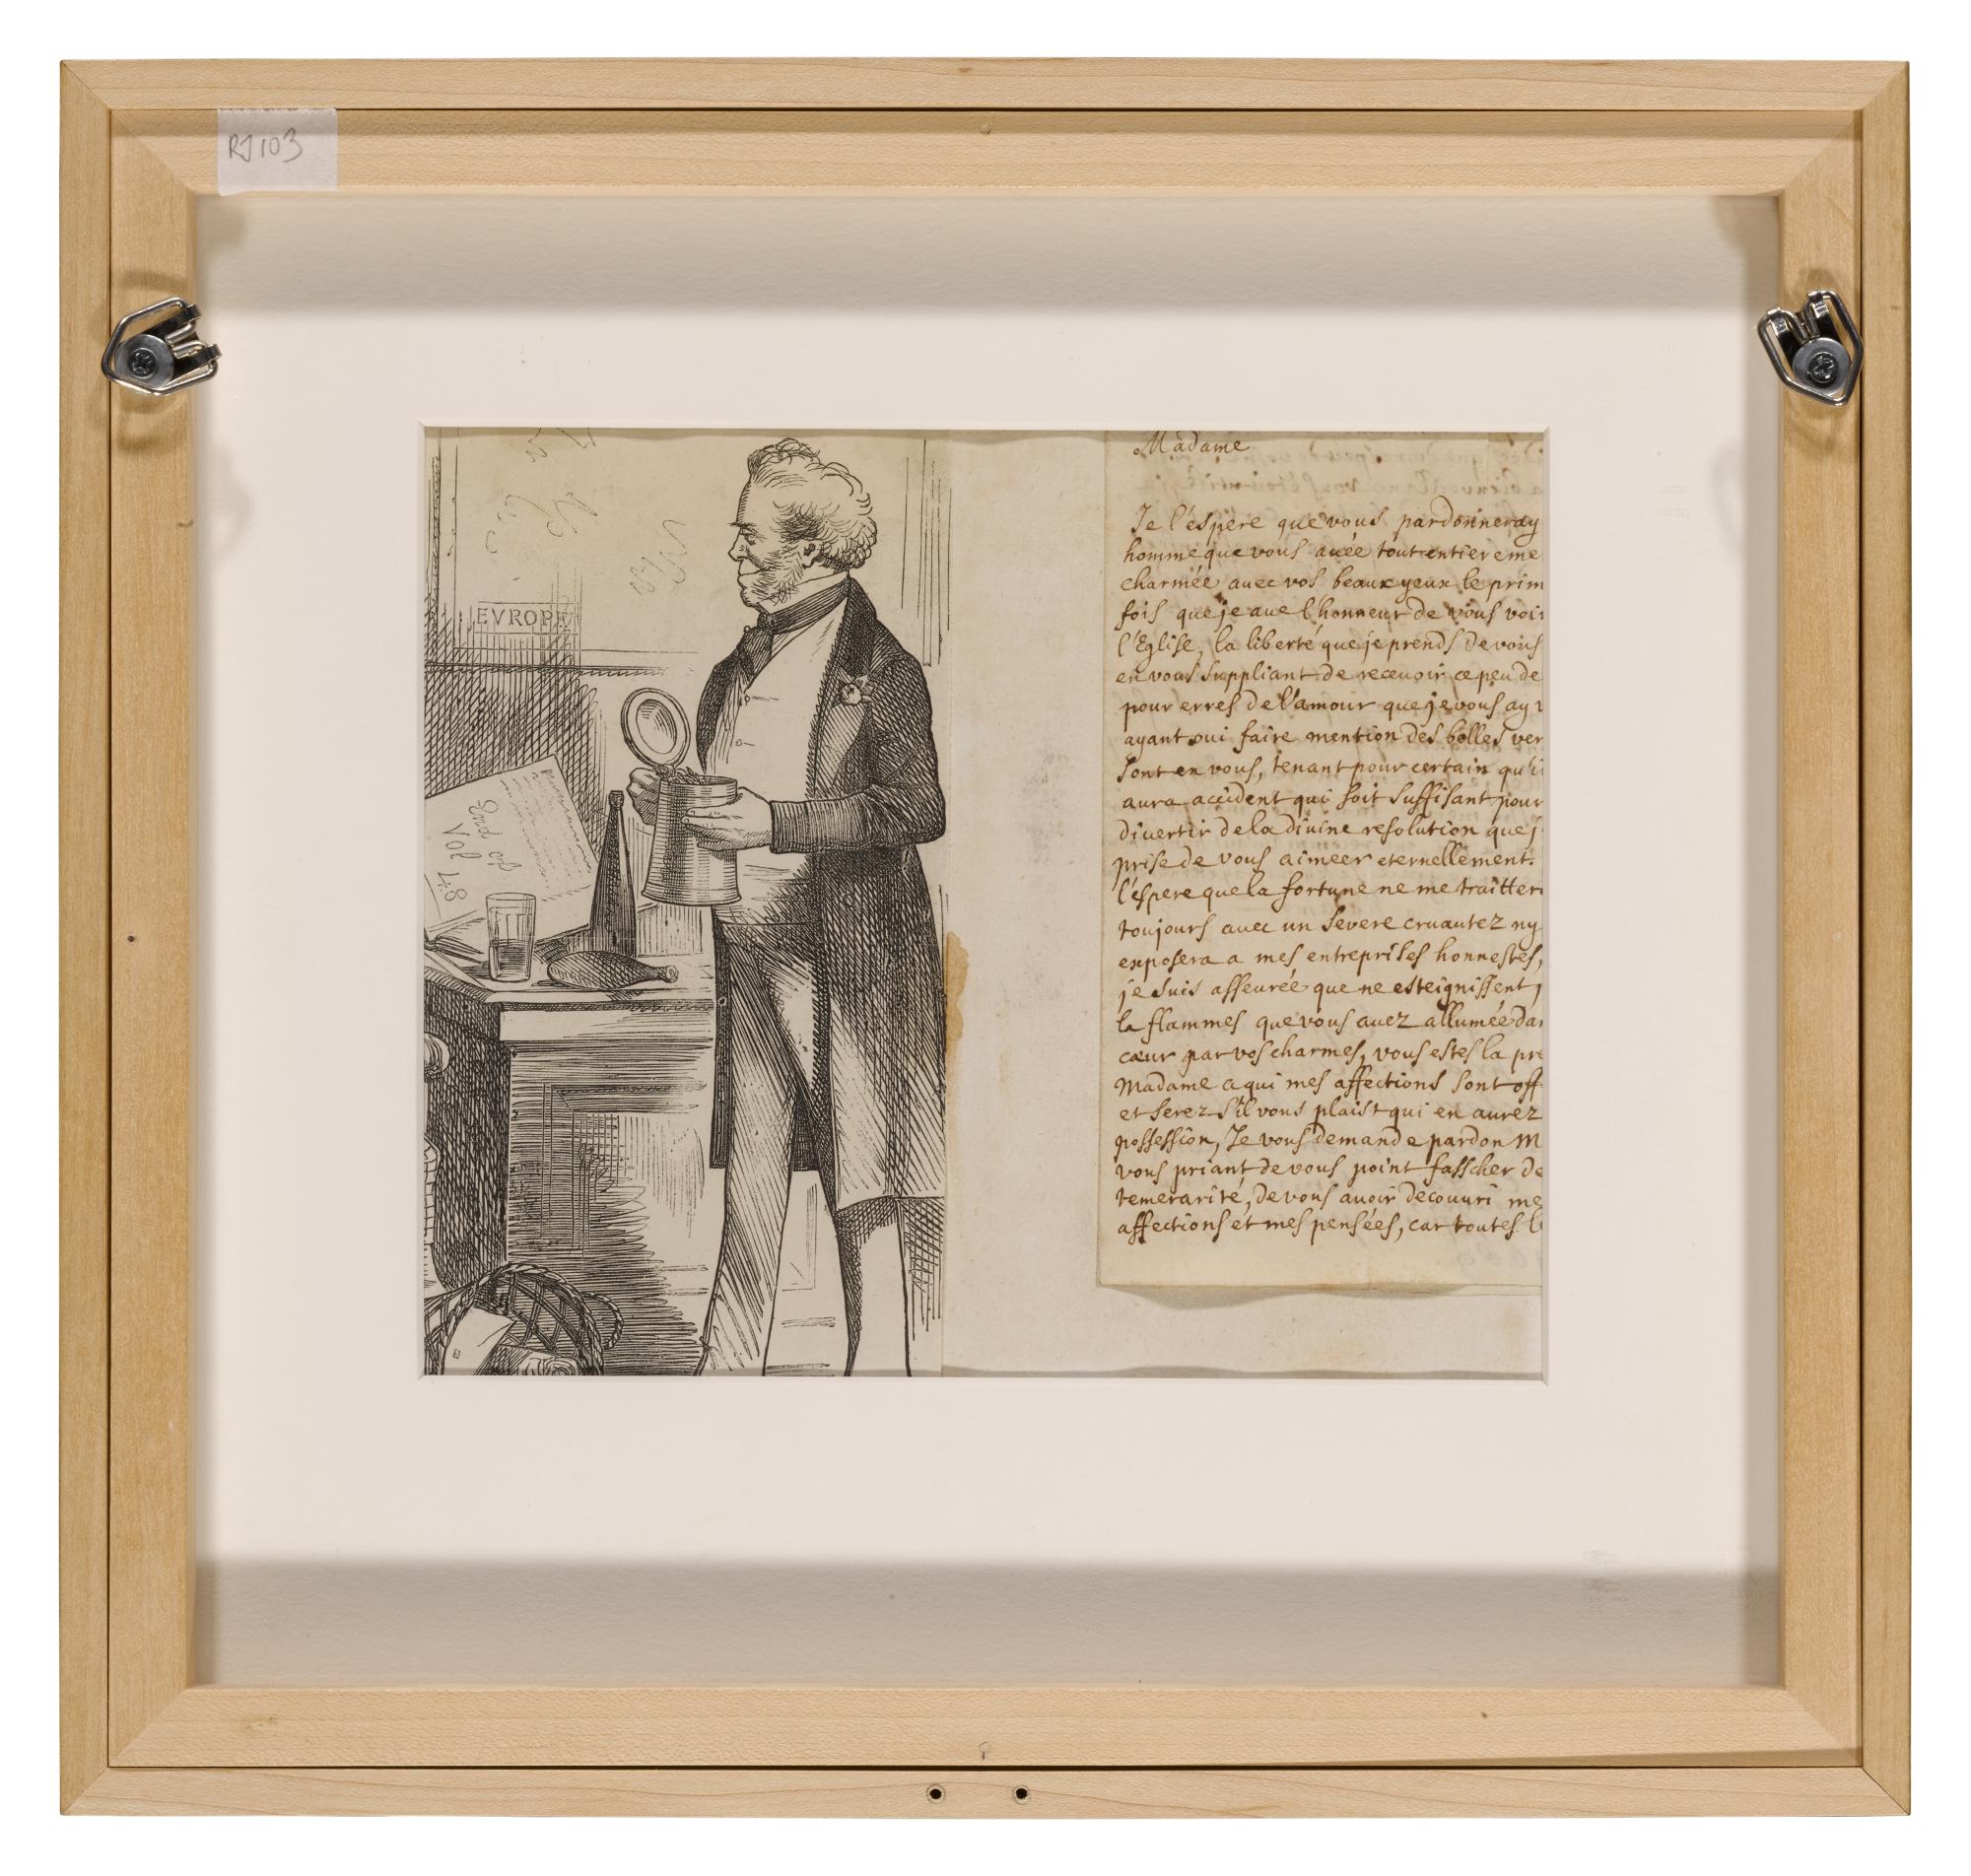 RJ103
EVROPE
End of
Vol 48
Madame
Je l'espere que vous pardonneray
homme que vous auée toutentiereme
charmée auec vos beaux yeux le prim
fois que je aue l'honneur de vous voir
l'Eglise, la liberté que je prends de vous
en vous suppliant de receuoir ce peu de
pour erres de l'amour que je vous ay
ayant oui faire mention des belles ver
sont en vous, tenant pour certain qu'i
aura accident qui soit suffisant pour
divertir de la diuine resolution que j
prise de vous aimeer eternellement.
l'espere que la fortune ne me traitter
toujours auec un severe cruautez ny
exposera a mes entreprises honnestes,
je suis asseurée que ne esteignissent
la flammes que vous auez allumée dan
cœur par vos charmes, vous estes la pre
Madame a qui mes affections sont off
et serez s'il vous plaist qui en aurez
possession, Je vous demande pardon M
vous priant de vous point fasscher de
temerarité, de vous auoir decouuri me
affections et mes pensées, car toutes l